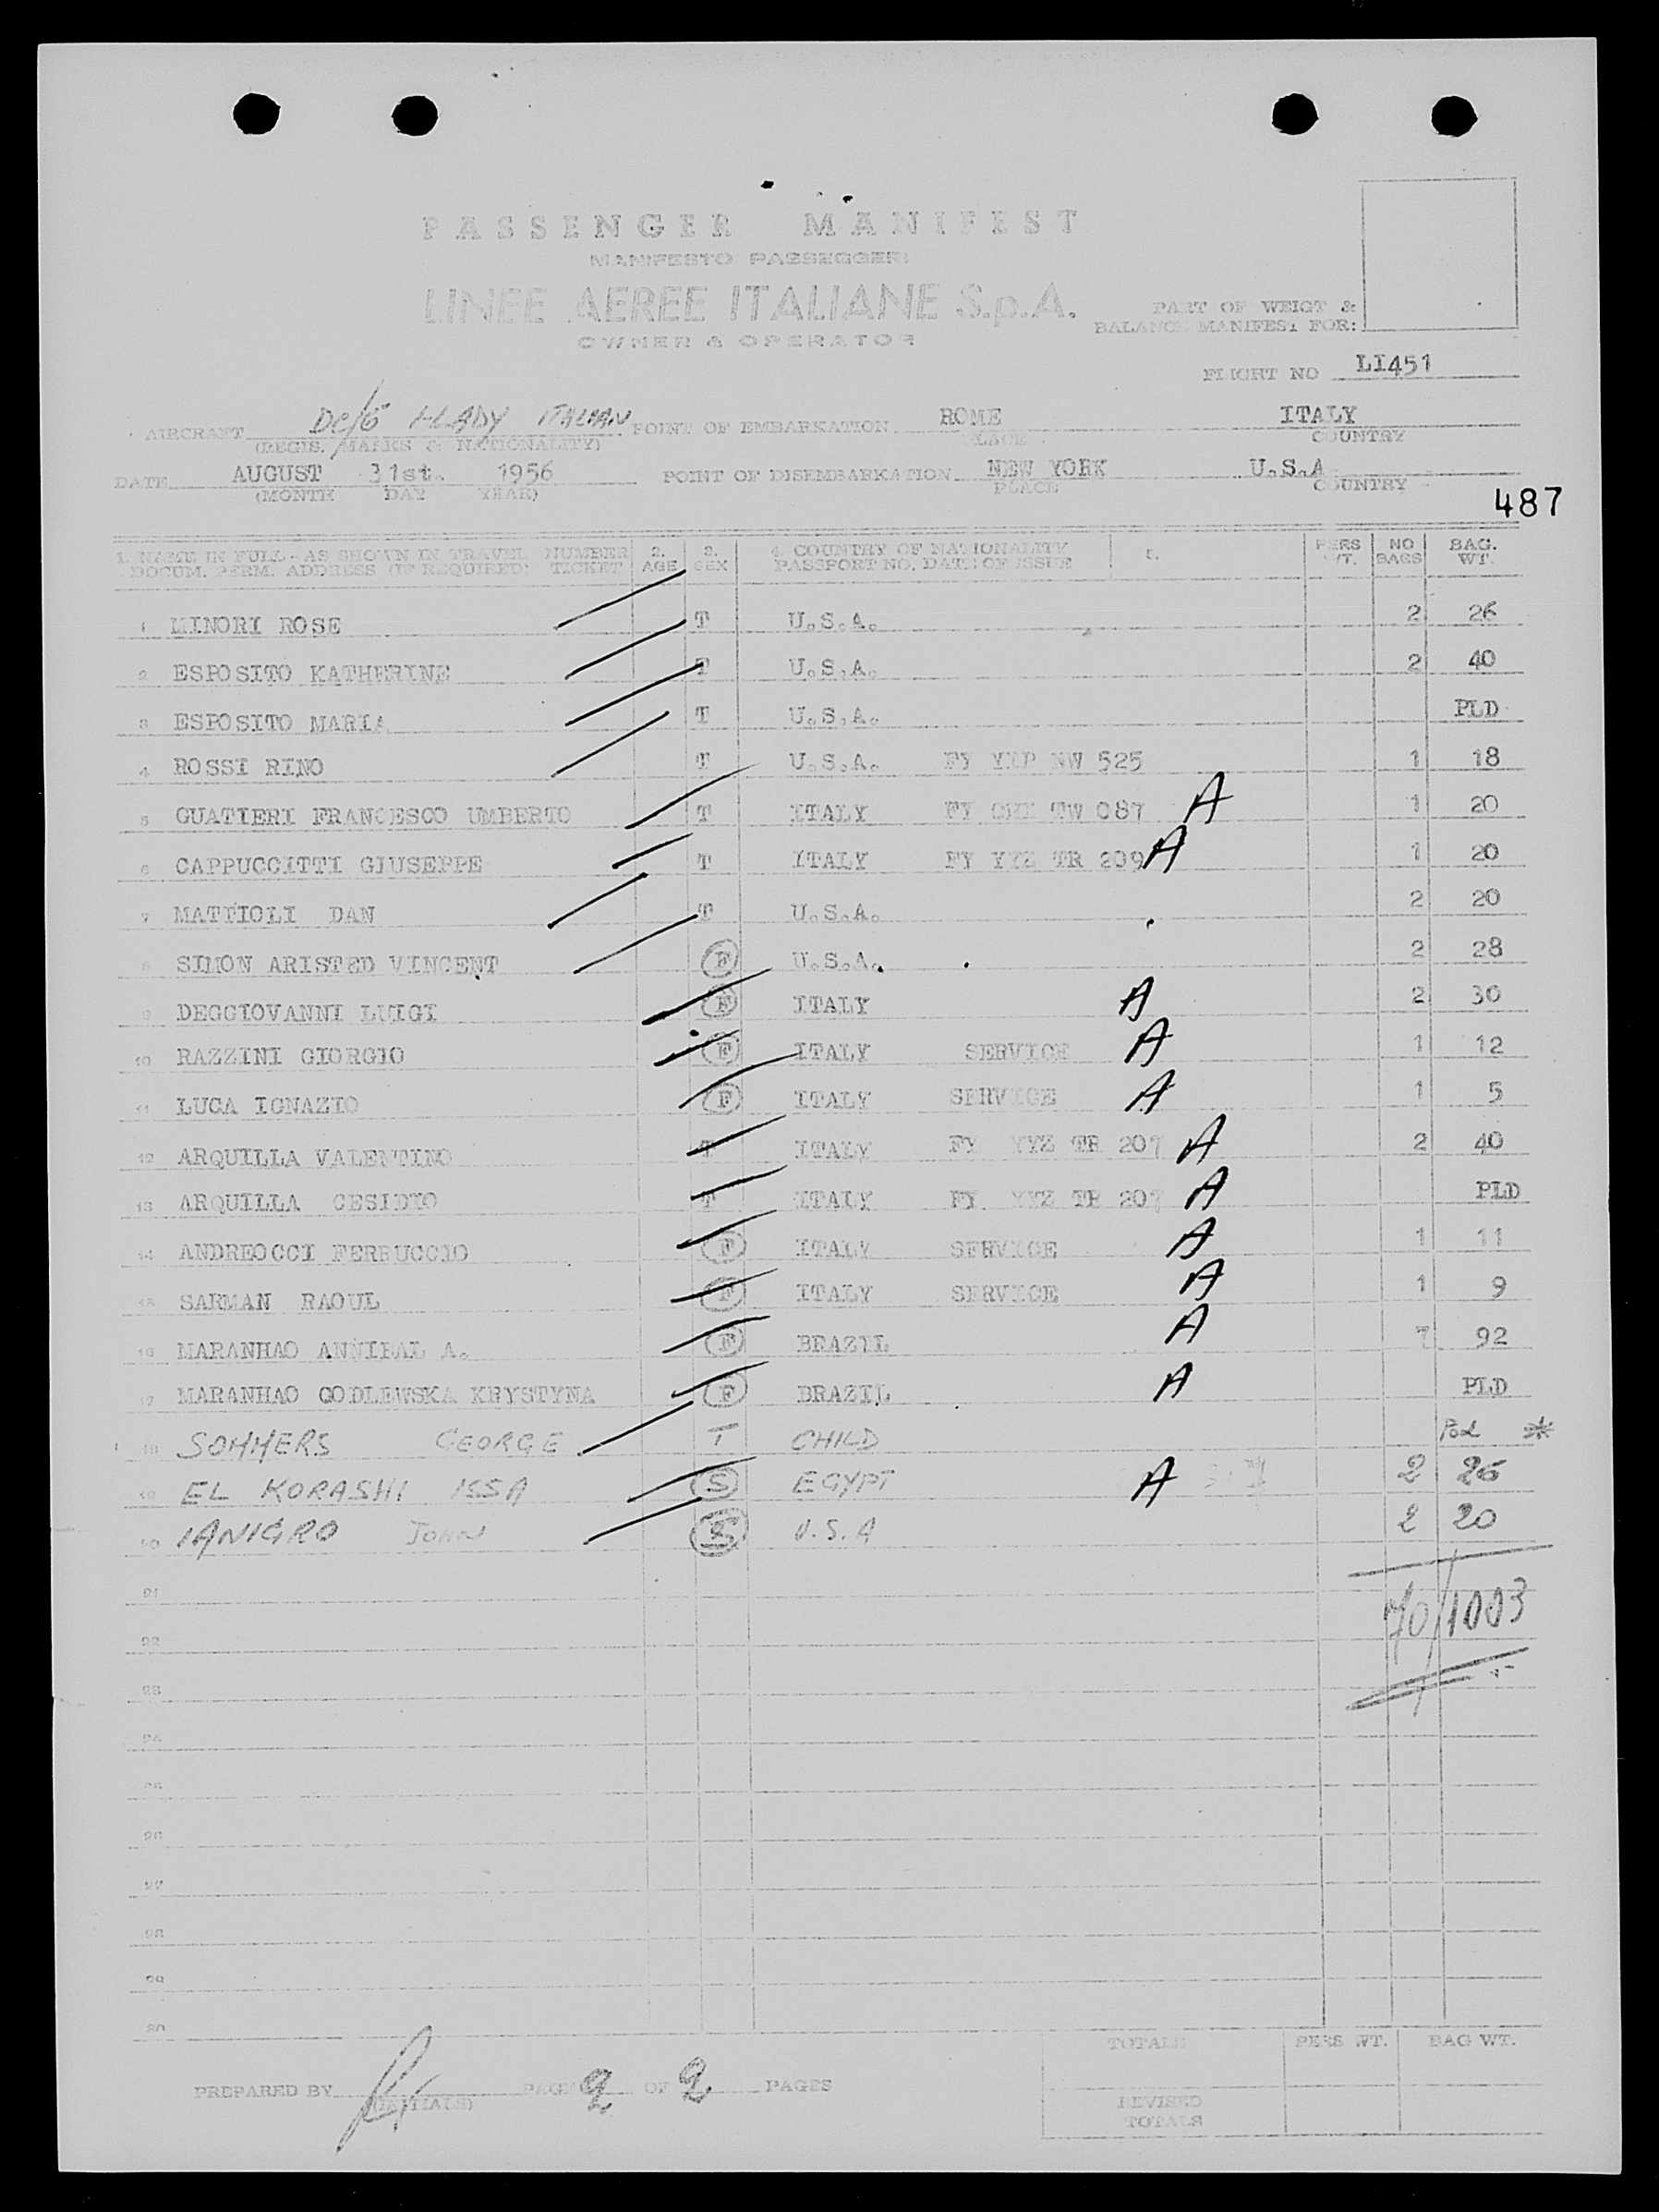 PASSENGER MANIFEST
MANIFESTO PASSEGGERI
LINEE AEREE ITALIANE S.p.A.
OWNER & OPERATOR
PART OF WEIGT &
BALANCE MANIFEST FOR:
FLIGHT NO LI451
AIRCRAFT DC/6 I-LADY ITALIAN POINT OF EMBARKATION ROME ITALY
(REGIS. MARKS & NATIONALITY) PLACE COUNTRY
DATE AUGUST 31st. 1956 POINT OF DISEMBARKATION NEW YORK U.S.A
(MONTH DAY YEAR) PLACE COUNTRY
487
1. NAME IN FULL - AS SHOWN IN TRAVEL NUMBER 2. 3. 4. COUNTRY OF NATIONALITY 5. PERS NO BAG.
DOCUM. PERM. ADDRESS (IF REQUIRED) TICKET AGE SEX PASSPORT NO. DATE OF ISSUE WT. BAGS WT.
1 MINORI ROSE T U.S.A. 2 26
2 ESPOSITO KATHERINE T U.S.A. 2 40
3 ESPOSITO MARIA T U.S.A. PLD
4 ROSSI RINO T U.S.A. FY YXP NW 525 1 18
5 GUATIERI FRANCESCO UMBERTO T ITALY FY CHI TW 087 A 1 20
6 CAPPUCCITTI GIUSEPPE T ITALY FY YYZ TR 209 A 1 20
7 MATTIOLI DAN T U.S.A. 2 20
8 SIMON ARISTED VINCENT F U.S.A. 2 28
9 DEGGIOVANNI LUIGI F ITALY A 2 30
10 RAZZINI GIORGIO F ITALY SERVICE A 1 12
11 LUCA IGNAZIO F ITALY SERVICE A 1 5
12 ARQUILLA VALENTINO T ITALY FY YYZ TR 207 A 2 40
13 ARQUILLA CESIDIO T ITALY FY YYZ TR 207 A PLD
14 ANDREOCCI FERRUCCIO F ITALY SERVICE A 1 11
15 SARMAN RAOUL F ITALY SERVICE A 1 9
16 MARANHAO ANNIBAL A. F BRAZIL A 7 92
17 MARANHAO GODLEWSKA KRYSTYNA F BRAZIL A PLD
18 SOMMERS GEORGE T CHILD Pod *
19 EL KORASHI ISSA S EGYPT A 2 26
20 IANIGRO JOHN S U.S.A 2 20
21
70/1003
22
23
24
25
26
27
28
29
30
TOTALS PERS WT. BAG WT.
PREPARED BY (INITIALS) PAGE 2 OF 2 PAGES
REVISED
TOTALS